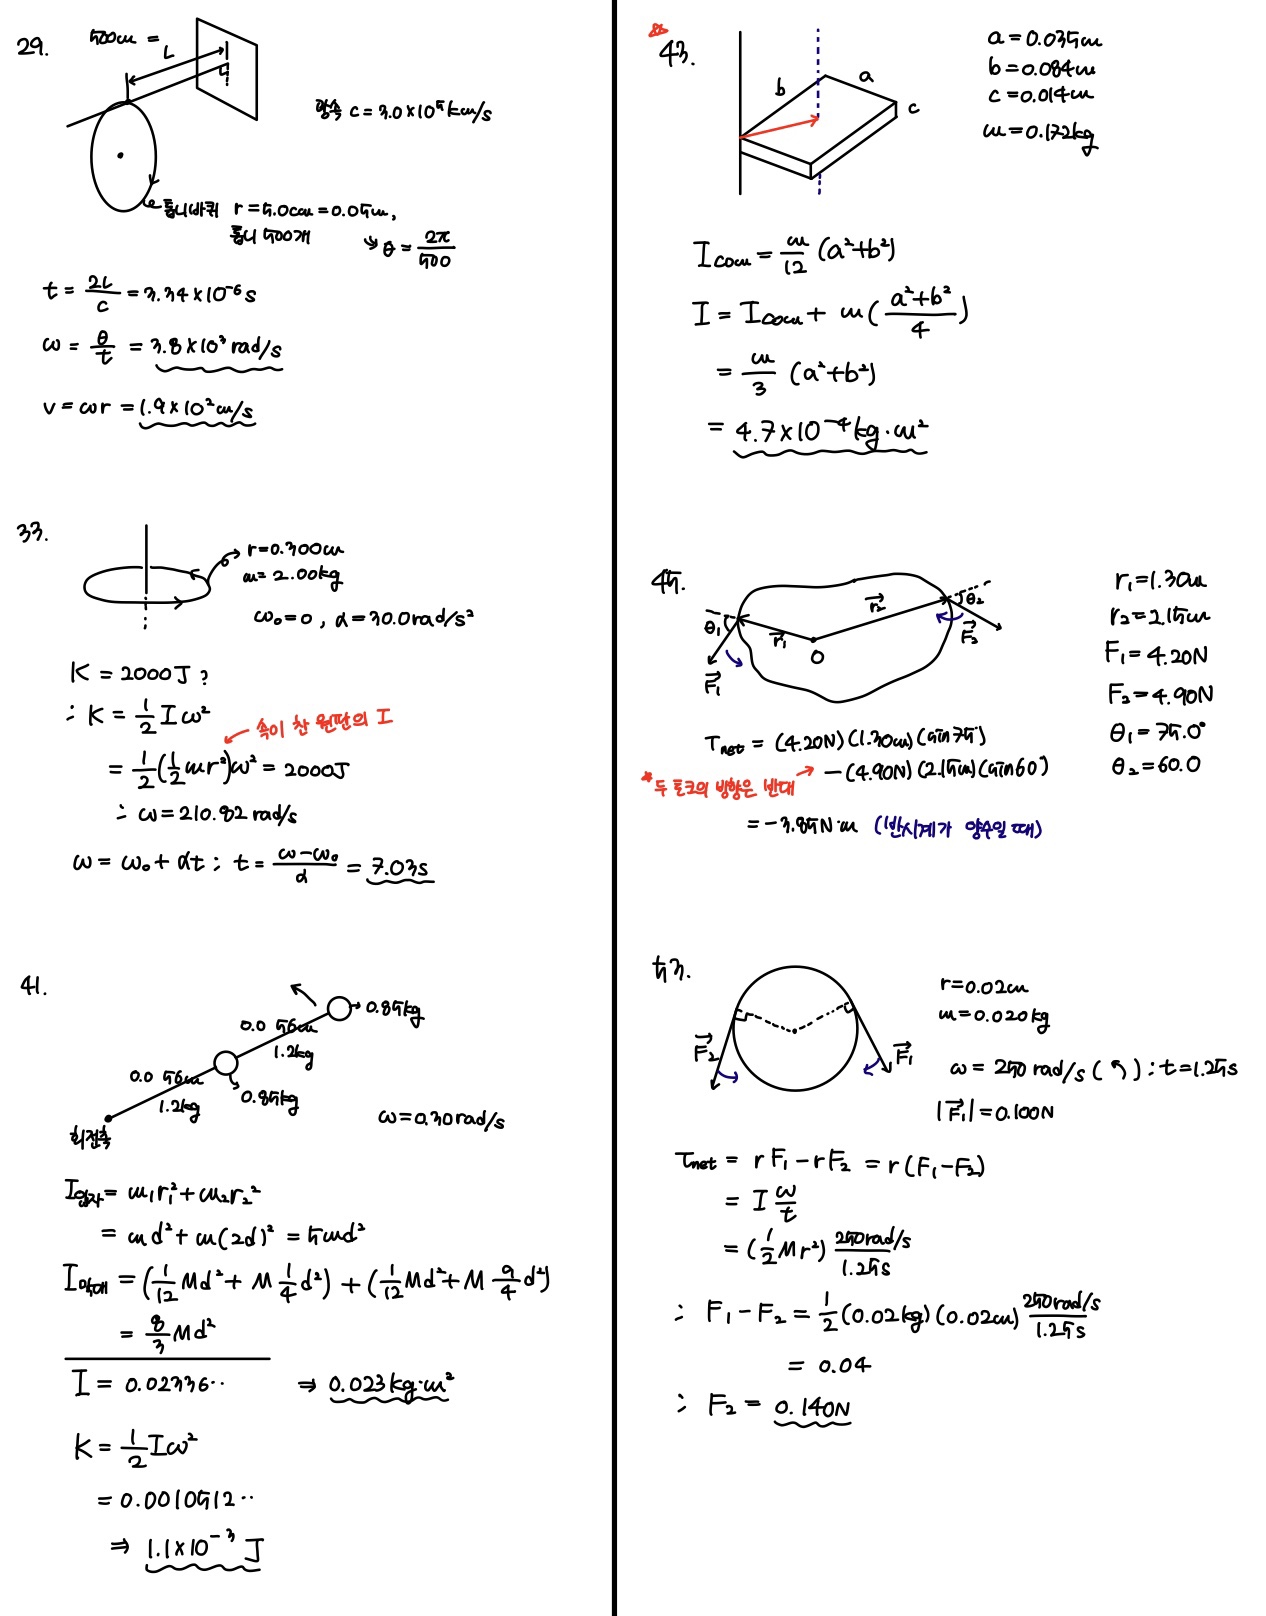 29.
500m =
L
광속 c = 3.0×10⁵km/s
톱니바퀴 r = 5.0cm = 0.05m,
톱니 500개 ↘ θ = 2π/500
t = 2L/c = 3.34×10⁻⁶s
ω = θ/t = 3.8×10³rad/s
v = ωr = 1.9×10²m/s
33.
r = 0.300m
m = 2.00kg
ω₀ = 0, α = 30.0rad/s²
K = 2000J ?
∴ K = 1/2 Iω²
속이 찬 원판의 I
= 1/2(1/2 mr²)ω² = 2000J
∴ ω = 210.82rad/s
ω = ω₀ + αt ; t = (ω-ω₀)/α = 7.03s
41.
0.85kg
0.056m
1.2kg
0.056m
1.2kg
0.85kg
회전축
ω = 0.30rad/s
I입자 = m₁r₁² + m₂r₂²
= md² + m(2d)² = 5md²
I막대 = (1/12 Md² + M 1/4 d²) + (1/12 Md² + M 9/4 d²)
= 8/3 Md²
I = 0.02336‥ ⇒ 0.023kg·m²
K = 1/2 Iω²
= 0.0010512‥
⇒ 1.1×10⁻³ J
43.
b
a
c
a = 0.035m
b = 0.084m
c = 0.014m
m = 0.172kg
Icom = m/12 (a²+b²)
I = Icom + m((a²+b²)/4)
= m/3 (a²+b²)
= 4.7×10⁻⁴kg·m²
45.
θ₁
r₁
O
r₂
θ₂
F₁
F₂
r₁ = 1.30m
r₂ = 2.15m
F₁ = 4.20N
F₂ = 4.90N
θ₁ = 75.0°
θ₂ = 60.0
τnet = (4.20N)(1.30m)(sin75°)
- (4.90N)(2.15m)(sin60°)
* 두 토크의 방향은 반대
= -3.85N·m (반시계가 양수일 때)
53.
F₂
F₁
r = 0.02m
m = 0.020kg
ω = 250rad/s (↰) : t = 1.25s
|F₁| = 0.100N
τnet = rF₁ - rF₂ = r(F₁-F₂)
= I ω/t
= (1/2 Mr²) 250rad/s / 1.25s
∴ F₁ - F₂ = 1/2 (0.02kg)(0.02m) 250rad/s / 1.25s
= 0.04
∴ F₂ = 0.140N